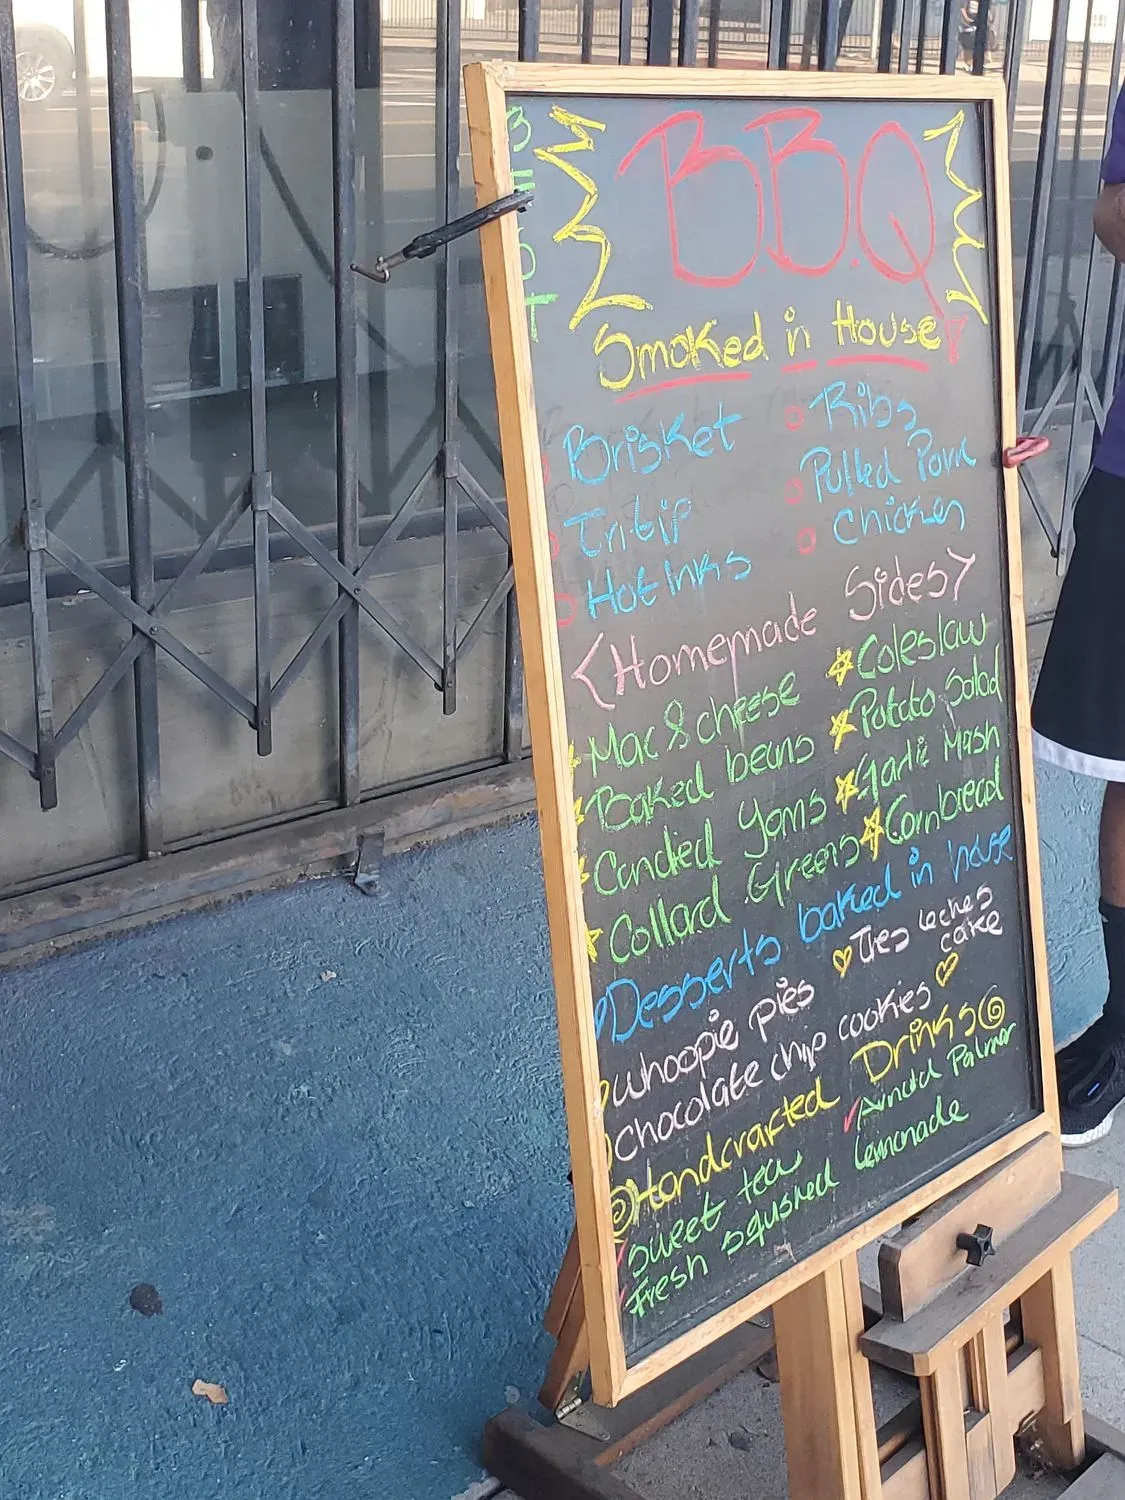 B.B.Q
Smoked in House
Brisket
Ribs
Tri-tip
Pulled Pork
Hot links
Chicken
<Homemade Sides>
Mac & cheese
Coleslaw
Baked beans
Potato Salad
Candied Yams
Garlic Mash
Collard Greens
Cornbread
Desserts baked in house
whoopie pies
Tres leches cake
chocolate chip cookies
Handcrafted Drinks
sweet tea
Arnold Palmer
Fresh squsred lemonade